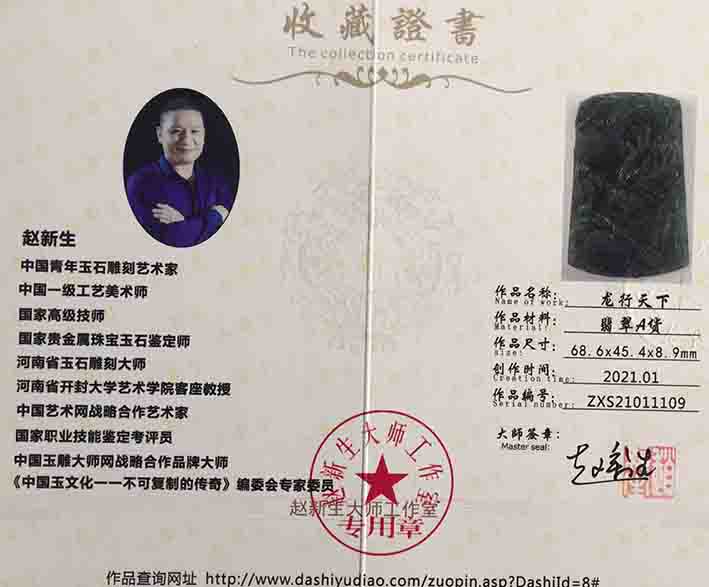 收藏證書
The collection certificate
赵新生
中国青年玉石雕刻艺术家
中国一级工艺美术师
国家高级技师
国家贵金属珠宝玉石鉴定师
河南省玉石雕刻大师
河南省开封大学艺术学院客座教授
中国艺术网战略合作艺术家
国家职业技能鉴定考评员
中国玉雕大师网战略合作品牌大师
《中国玉文化一一不可复制的传奇》编委会专家委员
作品名称: 龙行天下
Name of work:
作品材料: 翡翠A货
Material:
作品尺寸: 68.6x45.4x8.9mm
size:
创作时间: 2021.01
Creation time:
作品编号: ZXS21011109
Serial number:
大师签章:
Master seal:
赵新生大师工作室
赵新生大师工作室
专用章
作品查询网址 http://www.dashiyudiao.com/zuopin.asp?DashiId=8#